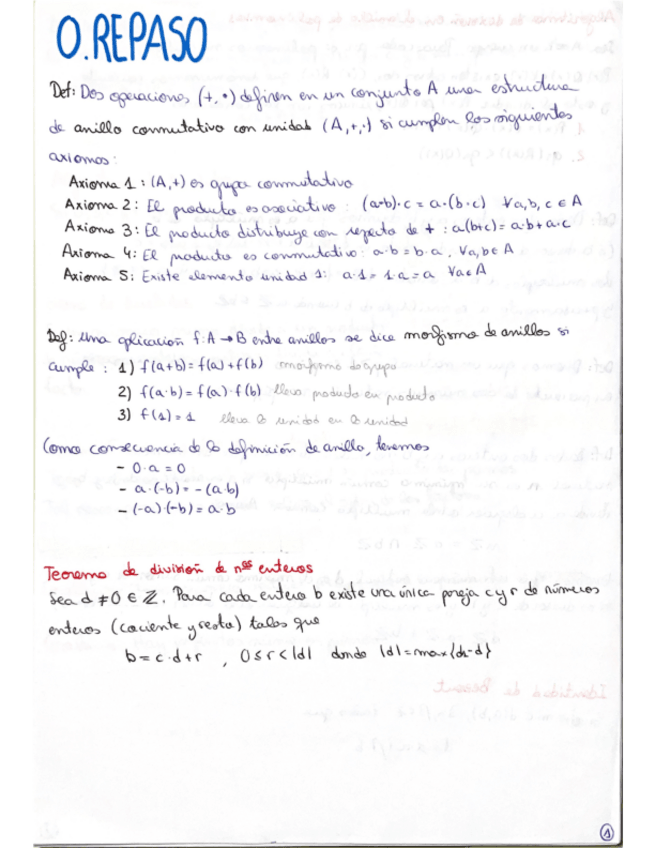 0. REPASO
Def: Dos operaciones (+, •) definen en un conjunto A una estructura
de anillo conmutativo con unidad (A,+,·) si cumplen los siguientes
axiomas:
Axioma 1: (A,+) es grupo conmutativo
Axioma 2: El producto es asociativo: (a·b)·c = a·(b·c) ∀a,b,c ∈ A
Axioma 3: El producto distribuye con respecto de +: a(b+c) = a·b+a·c
Axioma 4: El producto es conmutativo: a·b = b·a, ∀a,b ∈ A
Axioma 5: Existe elemento unidad 1: a·1 = 1·a = a ∀a ∈ A
Def: Una aplicación f: A → B entre anillos se dice morfismo de anillos si
cumple: 1) f(a+b) = f(a) + f(b) morfismo de grupo
2) f(a·b) = f(a)·f(b) lleva producto en producto
3) f(1) = 1 lleva la unidad en la unidad
Como consecuencia de la definición de anillo, tenemos
- 0·a = 0
- a·(-b) = -(a·b)
- (-a)·(-b) = a·b
Teorema de división de nºs enteros
Sea d ≠ 0 ∈ ℤ. Para cada entero b existe una única pareja c y r de números
enteros (cociente y resto) tales que
b = c·d + r , 0 ≤ r < |d| donde |d| = max{d,-d}
Identidad de Bézout
1